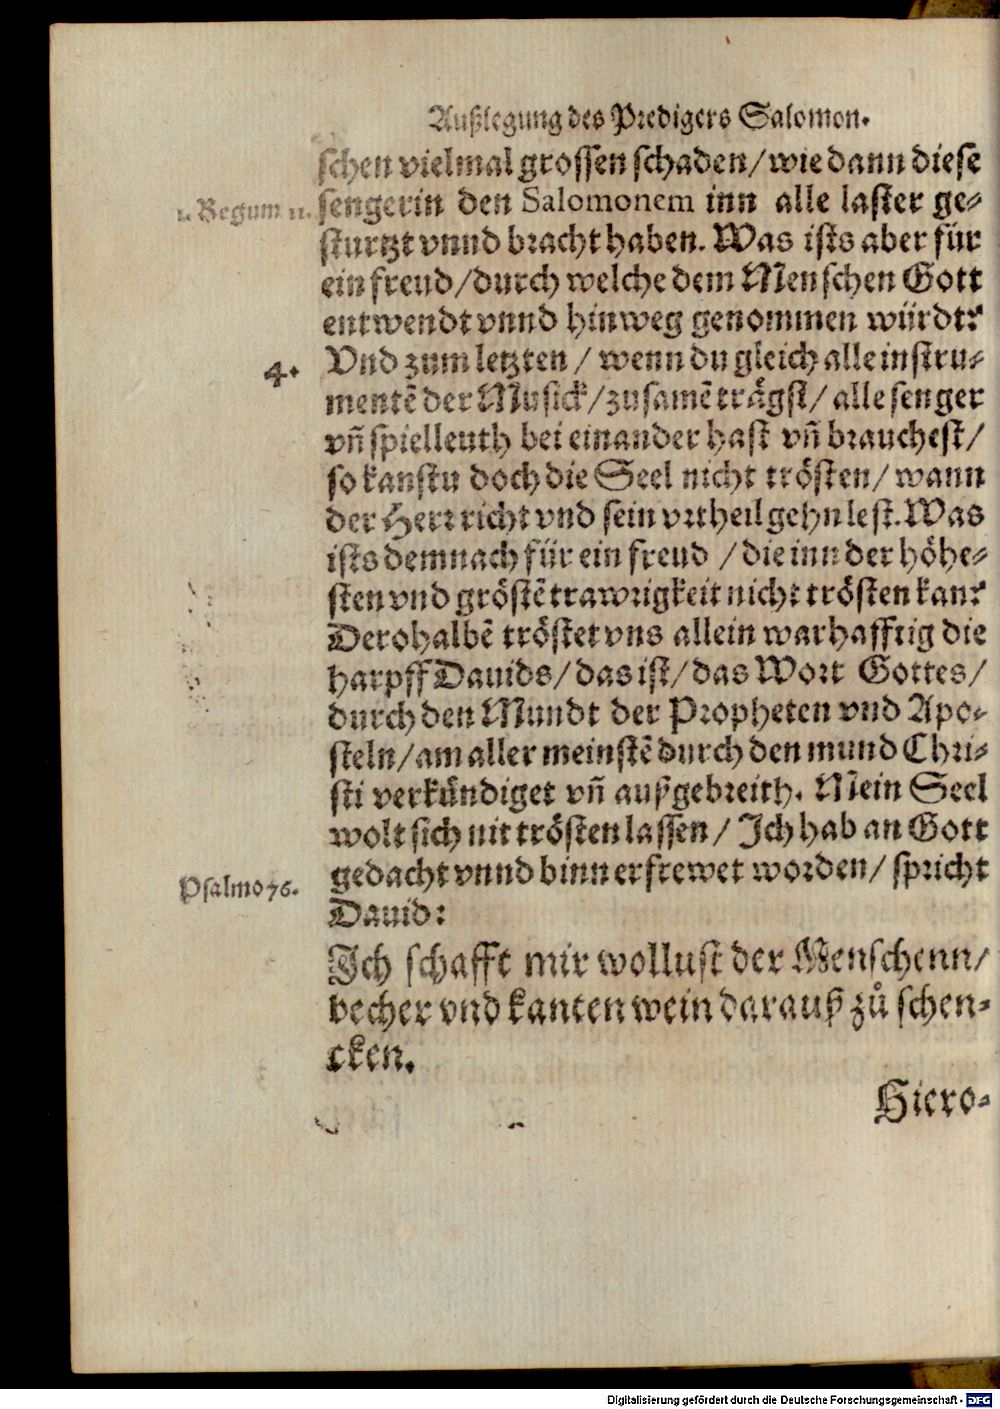 Außlegung des Predigers Salomon.
schen vielmal grossen schaden/wie dann diese
1. Regum 11. sengerin den Salomonem inn alle laster ge-
sturtzt vnnd bracht haben. Was ists aber für
ein freud/durch welche dem Menschen Gott
entwendt vnnd hinweg genommen würdt?
4. Vnd zum letzten / wenn du gleich alle instru-
mentē der Musick/zusamē trågst/ alle senger
vñ spielleuth bei einander hast vñ brauchest/
so kanstu doch die Seel nicht trösten/ wann
der Herr richt vnd sein vrtheil gehn lest. Was
ists demnach für ein freud / die inn der höhe-
sten vnd gröstē trawrigkeit nicht trösten kan?
Derohalbē tröstet vns allein warhafftig die
harpff Dauids/ das ist/ das Wort Gottes/
durch den Mundt der Propheten vnd Apo-
steln/am aller meinstē durch den mund Chri-
sti verkündiget vñ außgebreith. Mein Seel
wolt sich nit trösten lassen/ Ich hab an Gott
Psalmo 76. gedacht vnnd binn erfrewet worden/ spricht
Dauid:
Ich schafft mir wollust der Menschenn/
becher vnd kanten wein darauß zů schen-
cken.
Hiero-
Digitalisierung gefördert durch die Deutsche Forschungsgemeinschaft - DFG